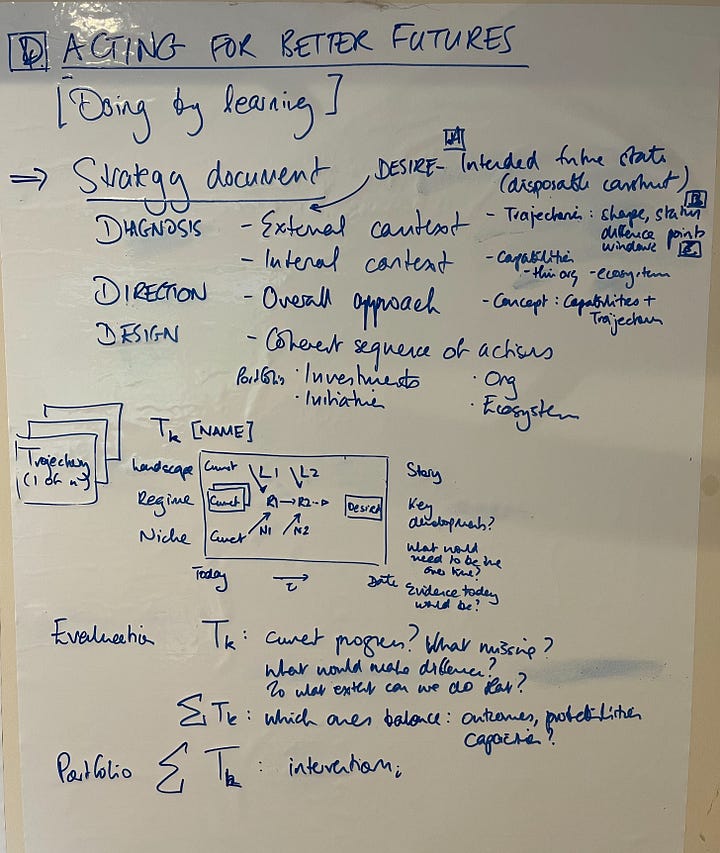 D ACTING FOR BETTER FUTURES
[Doing by learning]
⇒ Strategy document
A
DESIRE - Intended future state
(disposable construct)
DIAGNOSIS - External context
- Trajectories: shape, status
difference points
windows
B
C
- Internal context
- Capabilities
- this org - ecosystem
DIRECTION - Overall approach
- Concept: Capabilities +
Trajectories
DESIGN - Coherent sequence of actions
Portfolio · Investments · Org
· Initiatives · Ecosystem
Trajectory
(1 of n)
Tk [NAME]
Landscape Current L1 L2 Story
Regime Current R1 → R2 → Desired Key
developments?
Niche Current N1 N2 What would
need to be true
over time?
Today → τ Date Evidence today
would be?
Evaluation Tk: current progress? What missing?
What would make difference?
To what extent can we do that?
∑ Tk: which ones balance: outcomes, probabilities
capacities?
Portfolio ∑ Tk: interventions;